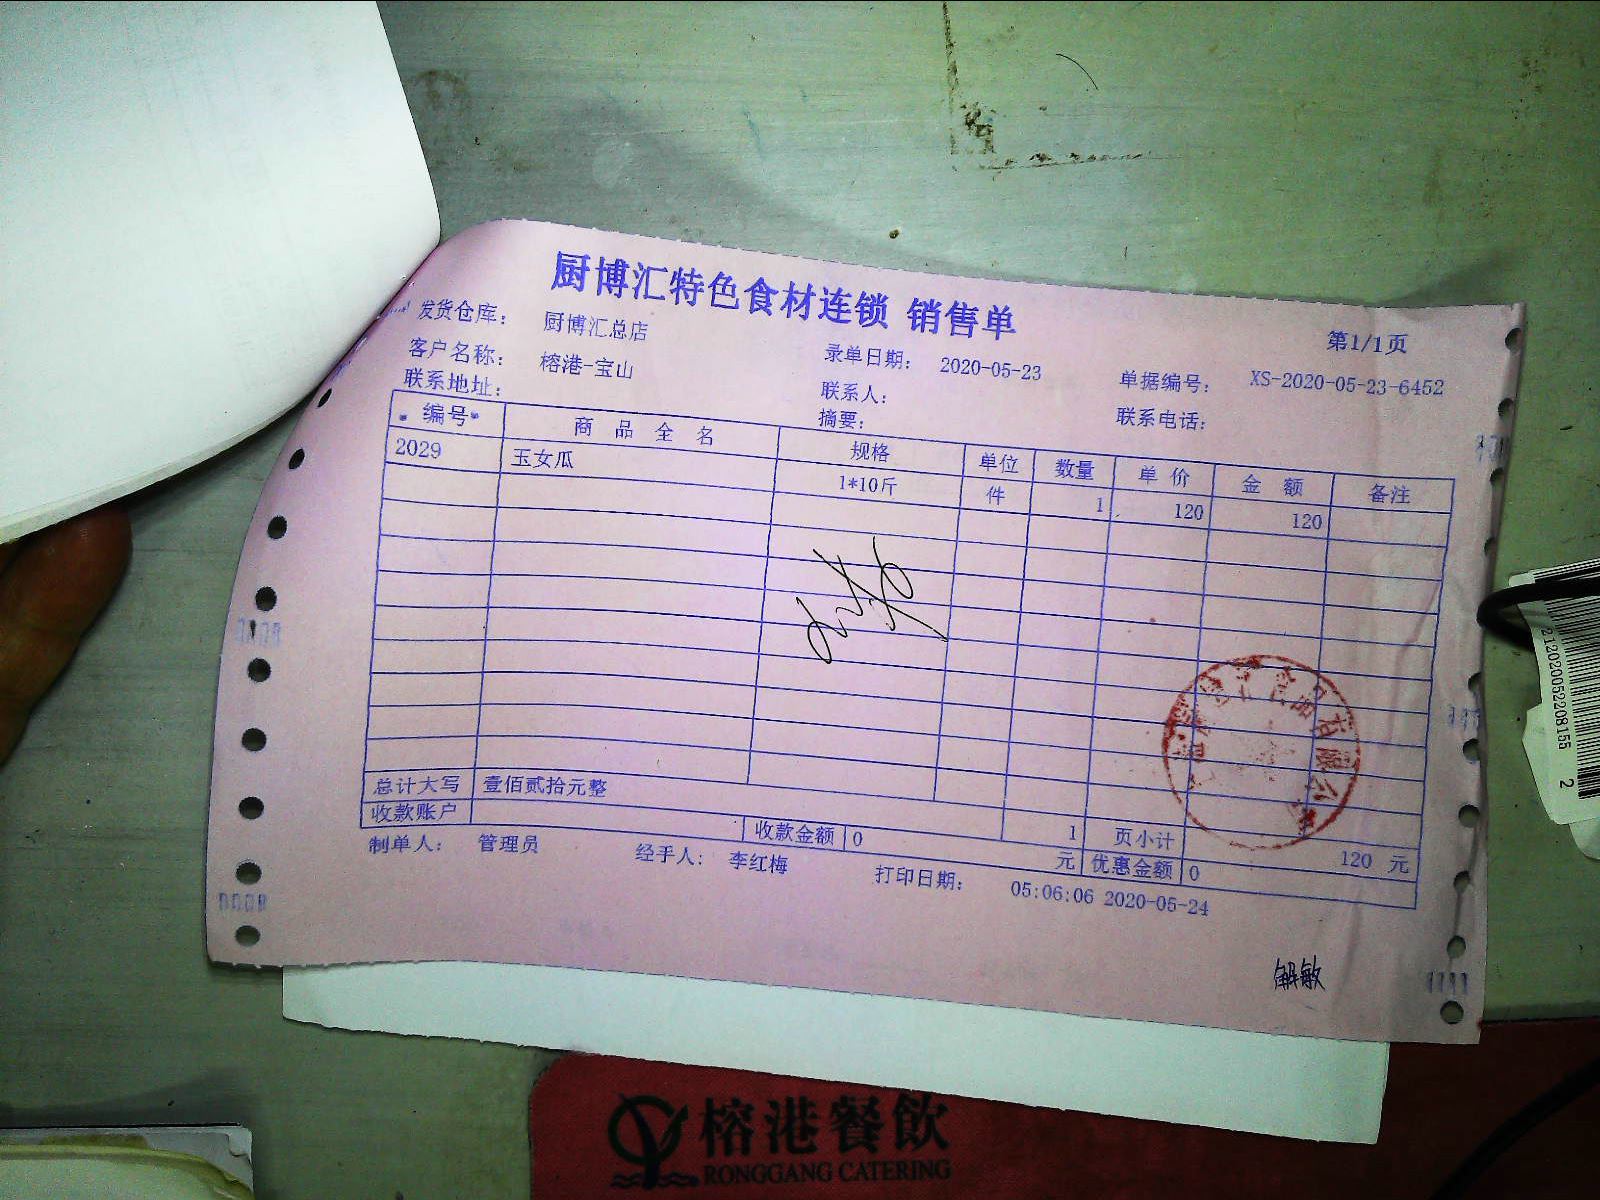 厨博汇特色食材连锁 销售单
第1/1页
发货仓库： 厨博汇总店
录单日期： 2020-05-23
单据编号： XS-2020-05-23-6452
客户名称： 榕港-宝山
联系人：
联系电话：
联系地址：
摘要：
编号 商品全名 规格 单位 数量 单价 金额 备注
2029 玉女瓜 1*10斤 件 1 120 120
总计大写 壹佰贰拾元整 1 页小计 120 元
收款账户 收款金额 0 元 优惠金额 0
制单人： 管理员 经手人： 李红梅 打印日期： 05:06:06 2020-05-24
解敏
212020052208155 2
榕港餐飲
RONGGANG CATERING